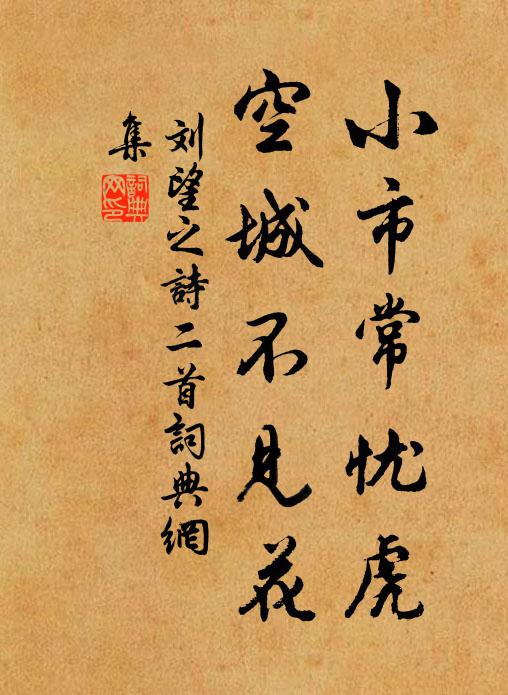 小市常忧虎
空城不见花
刘望之詩二首詞典網
集
詞典
网印